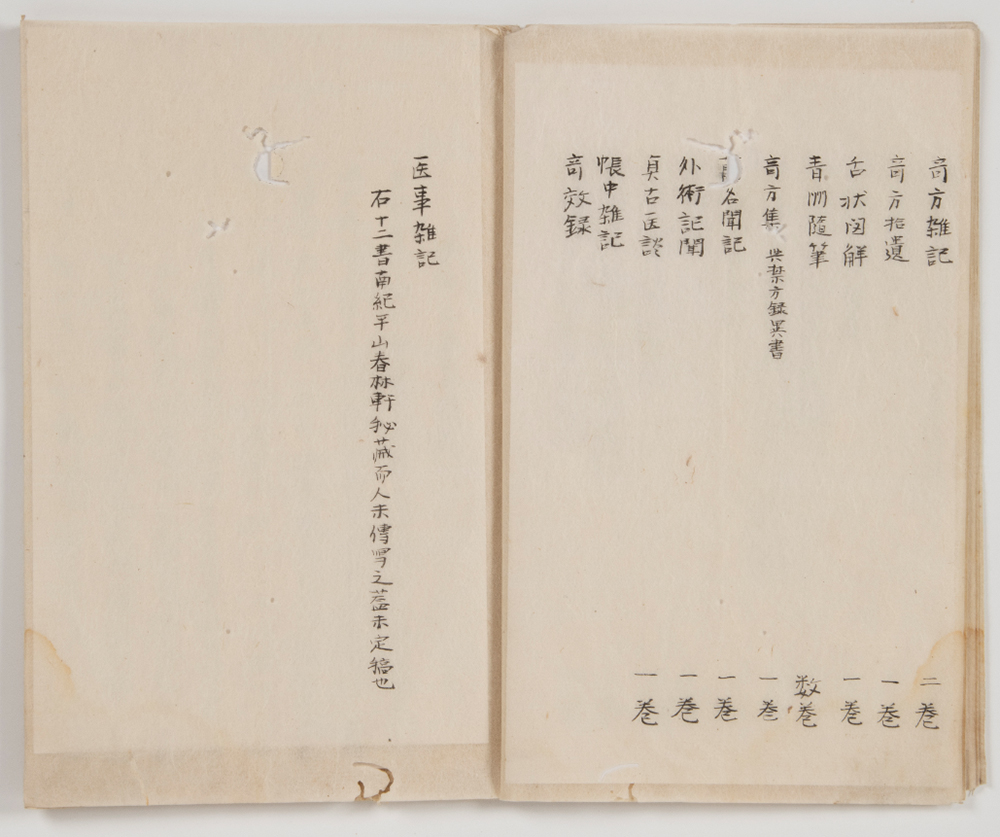 奇方雑記 二巻
奇方拾遺 一巻
舌状図解 一巻
青洲随筆 数巻
奇方集 与禁方録異書 一巻
聞記 一巻
外術記聞 一巻
貞古医談 一巻
帳中雑記
奇效録
医事雑記
右十二書南紀平山春林軒秘蔵而人未傳写之蓋未定稿也